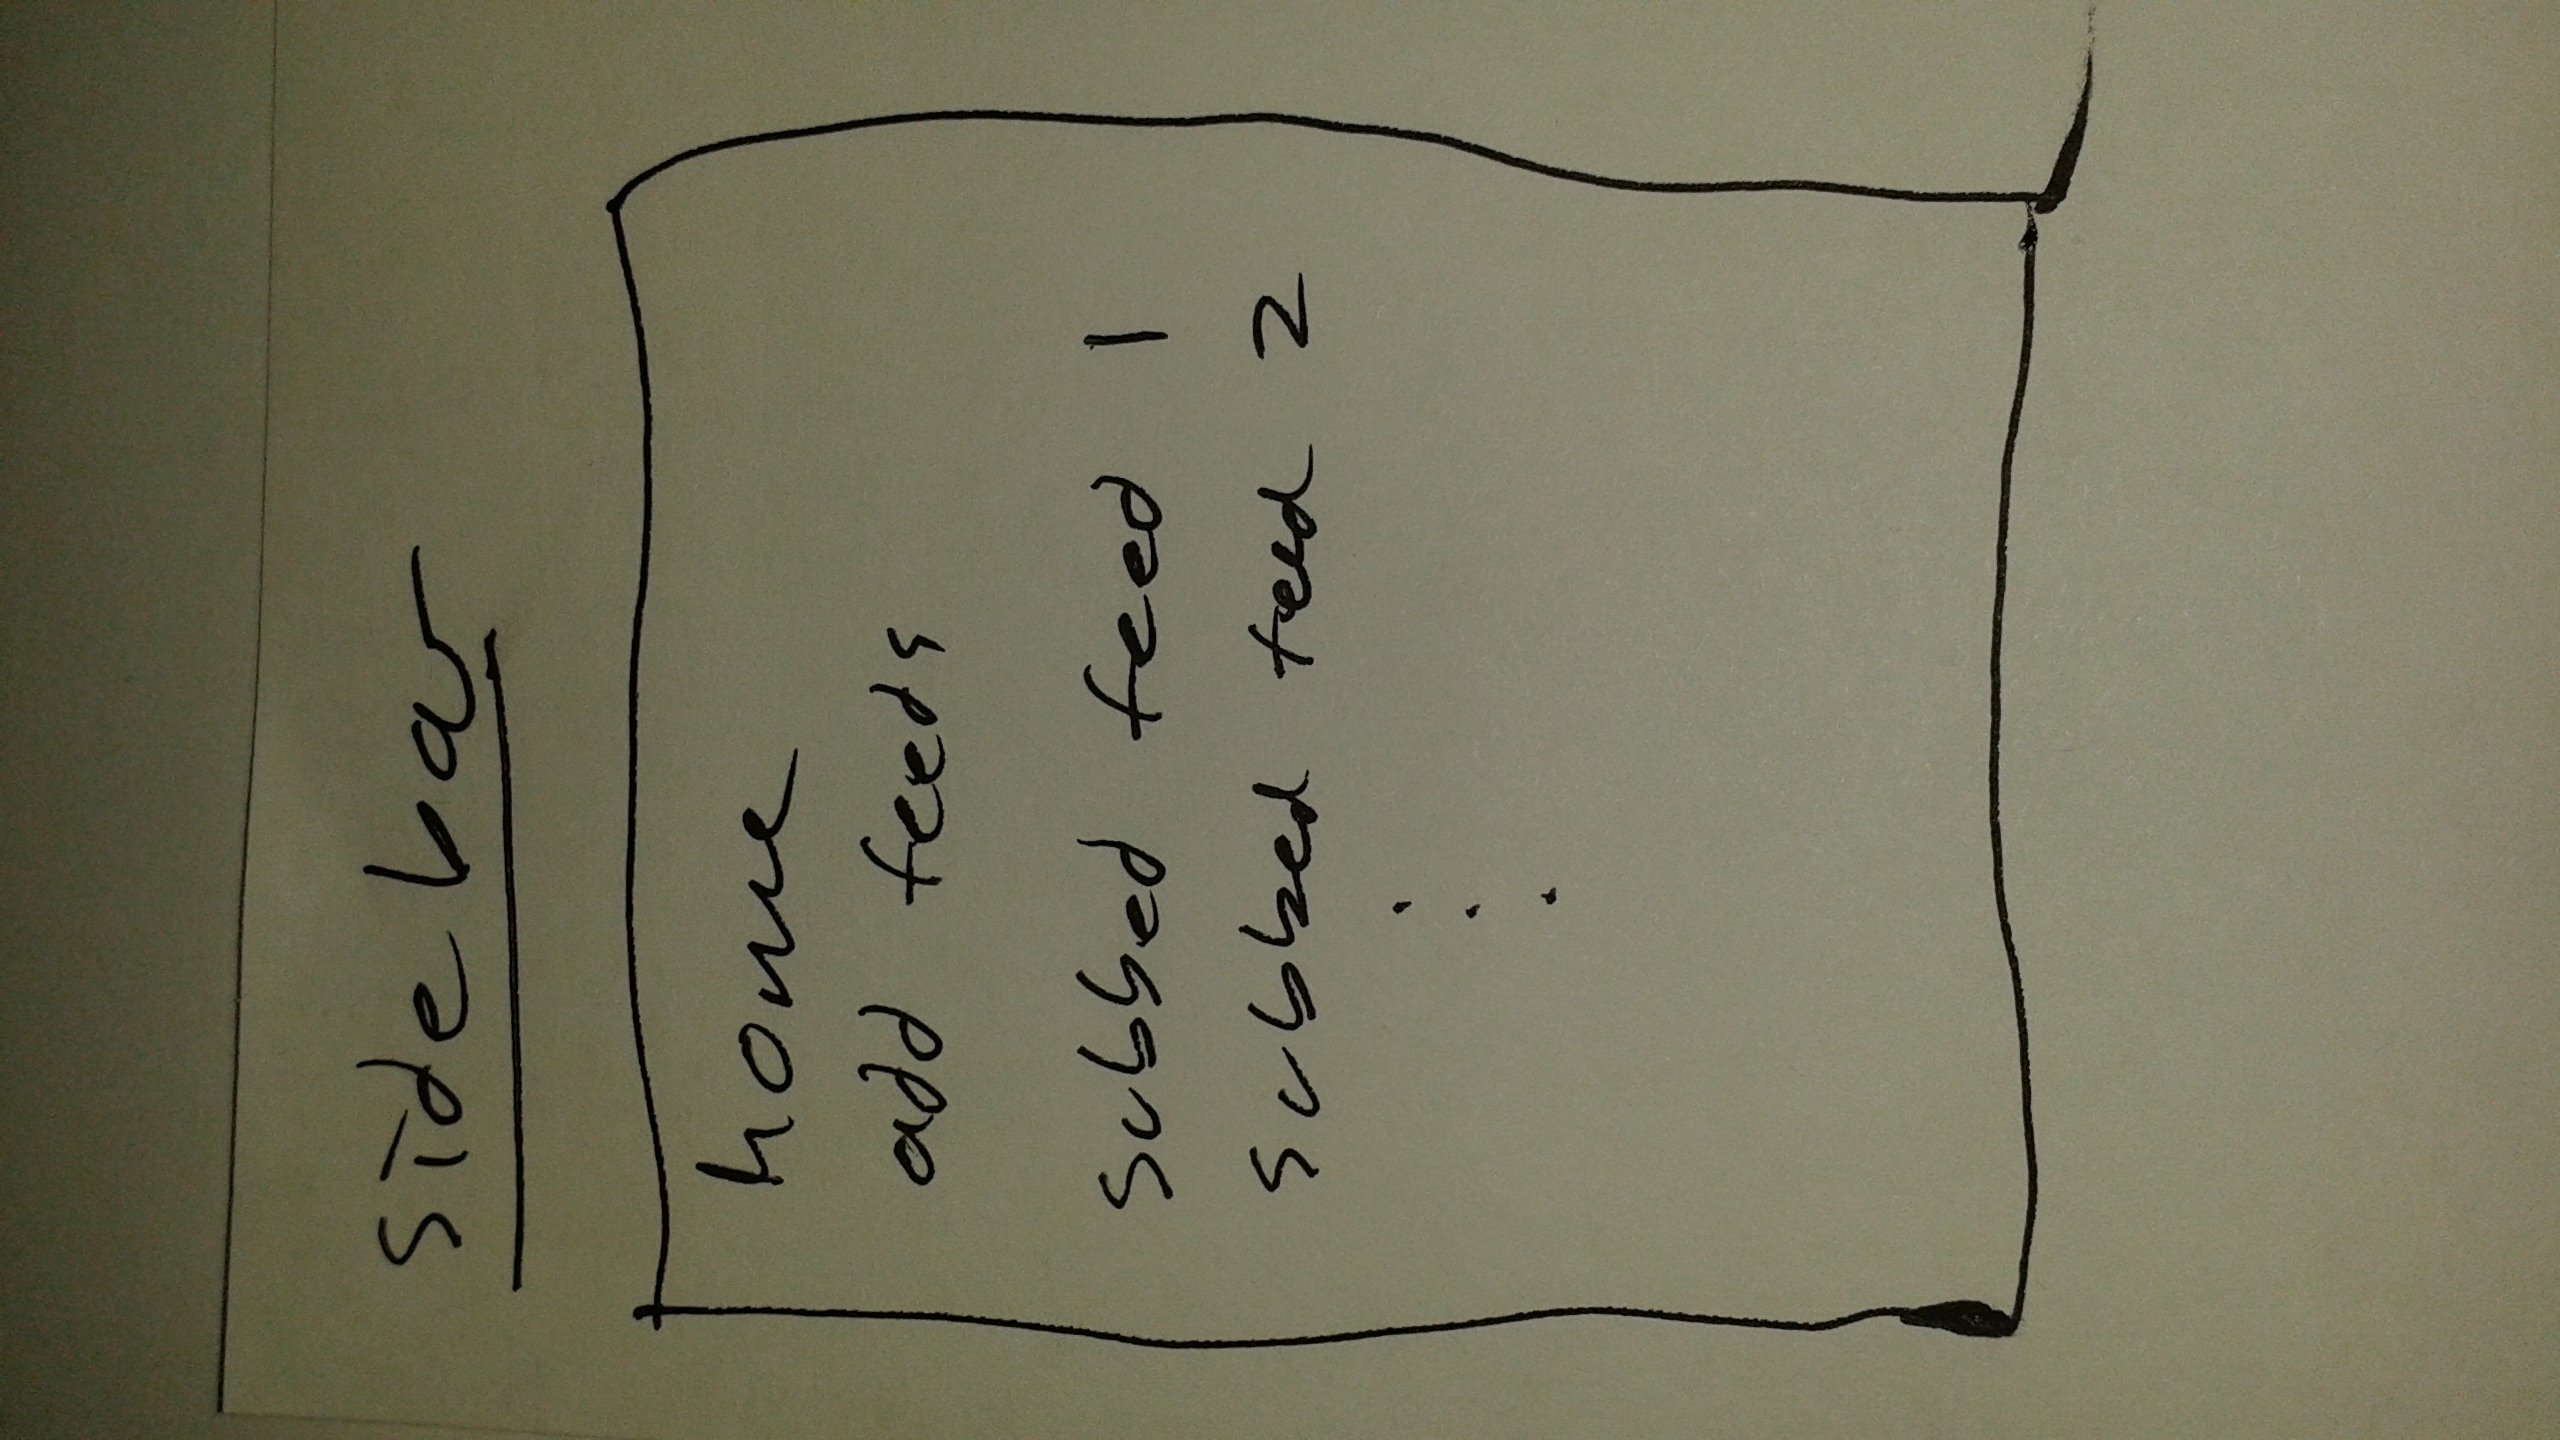 sidebar
home
add feeds
subbed feed 1
subbed feed 2
.
.
.